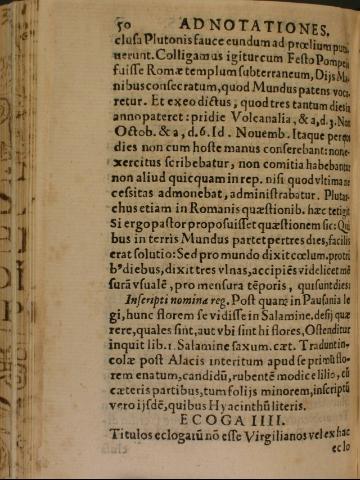 50 ADNOTATIONES.
clusa Plutonis fauce eundum ad prœlium puta
nerunt. Colligamus igitur cum Festo Pompeio
fuisse Romæ templum subterraneum, Dijs Ma
nibus consecratum, quod Mundus patens voca
retur. Et ex eo dictus, quod tres tantum dies in
anno pateret: pridie Volcanalia, & a, d. 3. Non
Octob. & a, d. 6. Id. Nouemb. Itaque per eos
dies non cum hoste manus conserebant: non e-
xercitus scribebatur, non comitia habebantur
non aliud quicquam in rep. nisi quod vltima ne
cessitas admonebat, administrabatur. Plutar-
chus etiam in Romanis quæstionib. hæc tetigit
Si ergo pastor proposuisset quæstionem sic: Qui
bus in terris Mundus patet per tres dies, facilis
erat solutio: Sed pro mundo dixit cœlum. pro tri
b⁹ diebus, dixit tres vlnas, accipiẽs videlicet mẽ
surã vsualẽ, pro mensura tẽporis, qui sunt dies:
Inscripti nomina reg. Post quam in Pausania le
gi, hunc florem se vidisse in Salamine. desij quæ
rere, quales sint, aut vbi sint hi flores, Ostenditur
inquit lib. 1. Salamine saxum. cæt. Tradunt in-
colæ post Aiacis interitum apud se primũ flo-
rem enatum, candidũ, rubentẽ modice lilio, cũ
cæteris partibus, tum folijs minorem, inscriptũ
vero ijsdẽ, quibus Hyacinthũ literis.
ECOGA IIII.
Titulos eclogarũ nõ esse Virgilianos vel ex hac
eclo